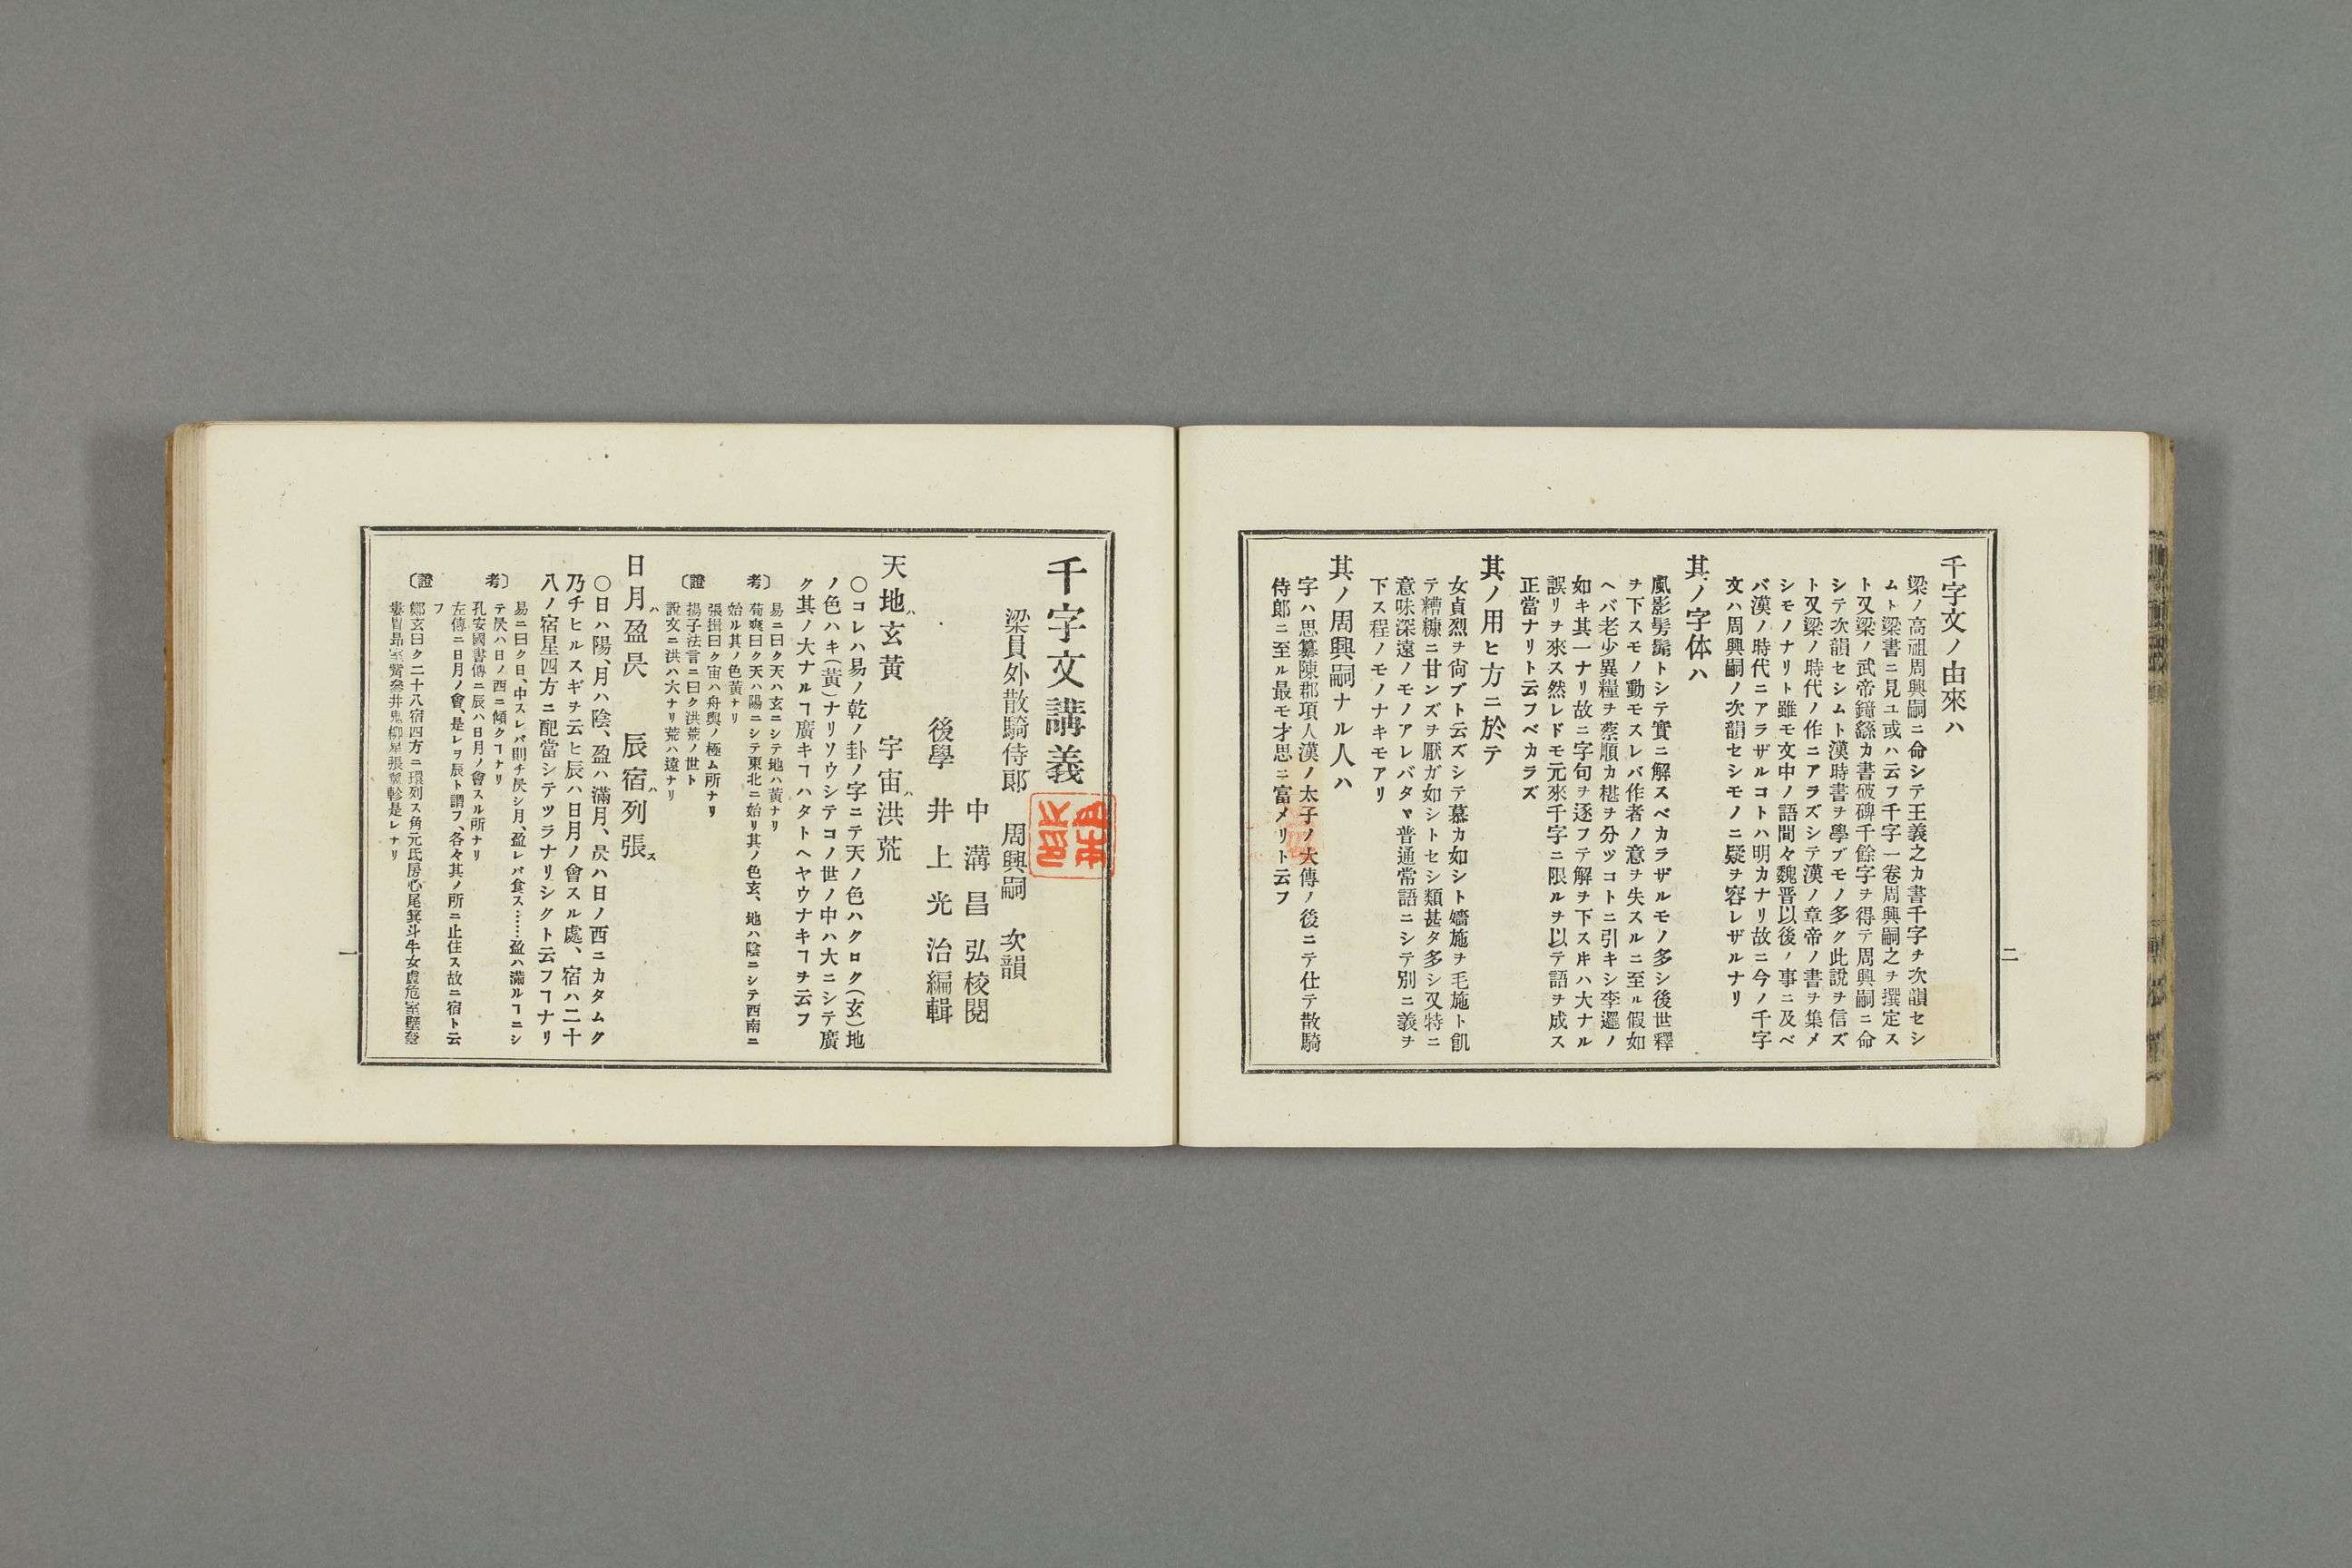 千字文ノ由來ハ
梁ノ高祖周興嗣ニ命シテ王義之カ書千字チ次韻セシ
ムト梁書ニ見ユ或ハ云フ千字一卷周興嗣之ヲ撰定ス
ト又梁ノ武帝鐘繇カ書破碑千餘字ヲ得テ周興嗣ニ命
シテ次韻セシムト漢時書ヲ學ブモノ多ク此說ヲ信ズ
ト又梁ノ時代ノ作ニアラズシテ漢ノ章帝ノ書ヲ集メ
シモノナリト雖モ文中ノ語間々魏晋以後ノ事ニ及ベ
バ漢ノ時代ニアラザルコトハ明カナリ故ニ今ノ千字
文ハ周興嗣ノ次韻セシモノニ疑ヲ容レザルナリ
其ノ字体ハ
風影髣髴トシテ實ニ解スベカラザルモノ多シ後世釋
ヲ下スモノ動モスレバ作者ノ意ヲ失スルニ至ル假如
ヘバ老少異糧ヲ蔡順カ椹ヲ分ツコトニ引キシ李暹ノ
如キ其一ナリ故ニ字句ヲ逐フテ解ヲ下スヰハ大ナル
誤リヲ來ス然レドモ元來千字ニ限ルヲ以テ語ヲ成ス
正當ナリト云フベカラズ
其ノ用ヒ方ニ於テ
女貞烈ヲ尙ブト云ズシテ慕カ如シト嬙施ヲ毛施ト飢
テ糟糠ニ甘ンズヲ厭ガ如シトセシ類甚タ多シ又特ニ
意味深遠ノモノアレバタマ普通常語ニシテ別ニ義ヲ
下ス程ノモノナキモアリ
其ノ周興嗣ナル人ハ
字ハ思纂陳郡項人漢ノ太子ノ太傅ノ後ニテ仕テ散騎
侍郎ニ至ル最モ才思ニ富メリト云フ
二
千字文講義
梁員外散騎侍郎 周興嗣 次韻
中溝昌弘校閱
後學 井上光治編輯
天地ハ玄黃 宇宙ハ洪荒
〇コレハ易ノ乾ノ卦ノ字ニテ天ノ色ハクロク(玄)地
ノ色ハキ(黃)ナリソウシテコノ世ノ中ハ大ニシテ廣
ク其ノ大ナルヿ廣キヿハタトヘヤウナキヿヲ云フ
考〕 易ニ曰ク天ハ玄ニシテ地ハ黃ナリ
荀爽曰ク天ハ陽ニシテ東北ニ始リ其ノ色玄、地ハ陰ニシテ西南ニ
始ル其ノ色黃ナリ
〔證 張揖曰ク宙ハ舟輿ノ極ム所ナリ
揚子法言ニ曰ク洪荒ノ世ト
說文ニ洪ハ大ナリ荒ハ遠ナリ
日月ハ盈昃 辰宿ハ列張ス
〇日ハ陽、月ハ陰、盈ハ滿月、昃ハ日ノ西ニカタムク
乃チヒルスギヲ云ヒ辰ハ日月ノ會スル處、宿ハ二十
八ノ宿星四方ニ配當シテツラナリシクト云フヿナリ
易ニ曰ク日、中スレバ則チ昃シ月、盈レバ食ス……盈ハ滿ルヿニシ
考〕 テ昃ハ日ノ西ニ傾クヿナリ
孔安國書傳ニ辰ハ日月ノ會スル所ナリ
左傳ニ日月ノ會、是レヲ辰ト謂フ、各々其ノ所ニ止住ス故ニ宿ト云
フ
〔證 鄭玄曰ク二十八宿四方ニ環列ス角亢氐房心尾箕斗牛女虛危室壁奎
婁胃昴室觜參井鬼柳星張翼軫是レナリ
一